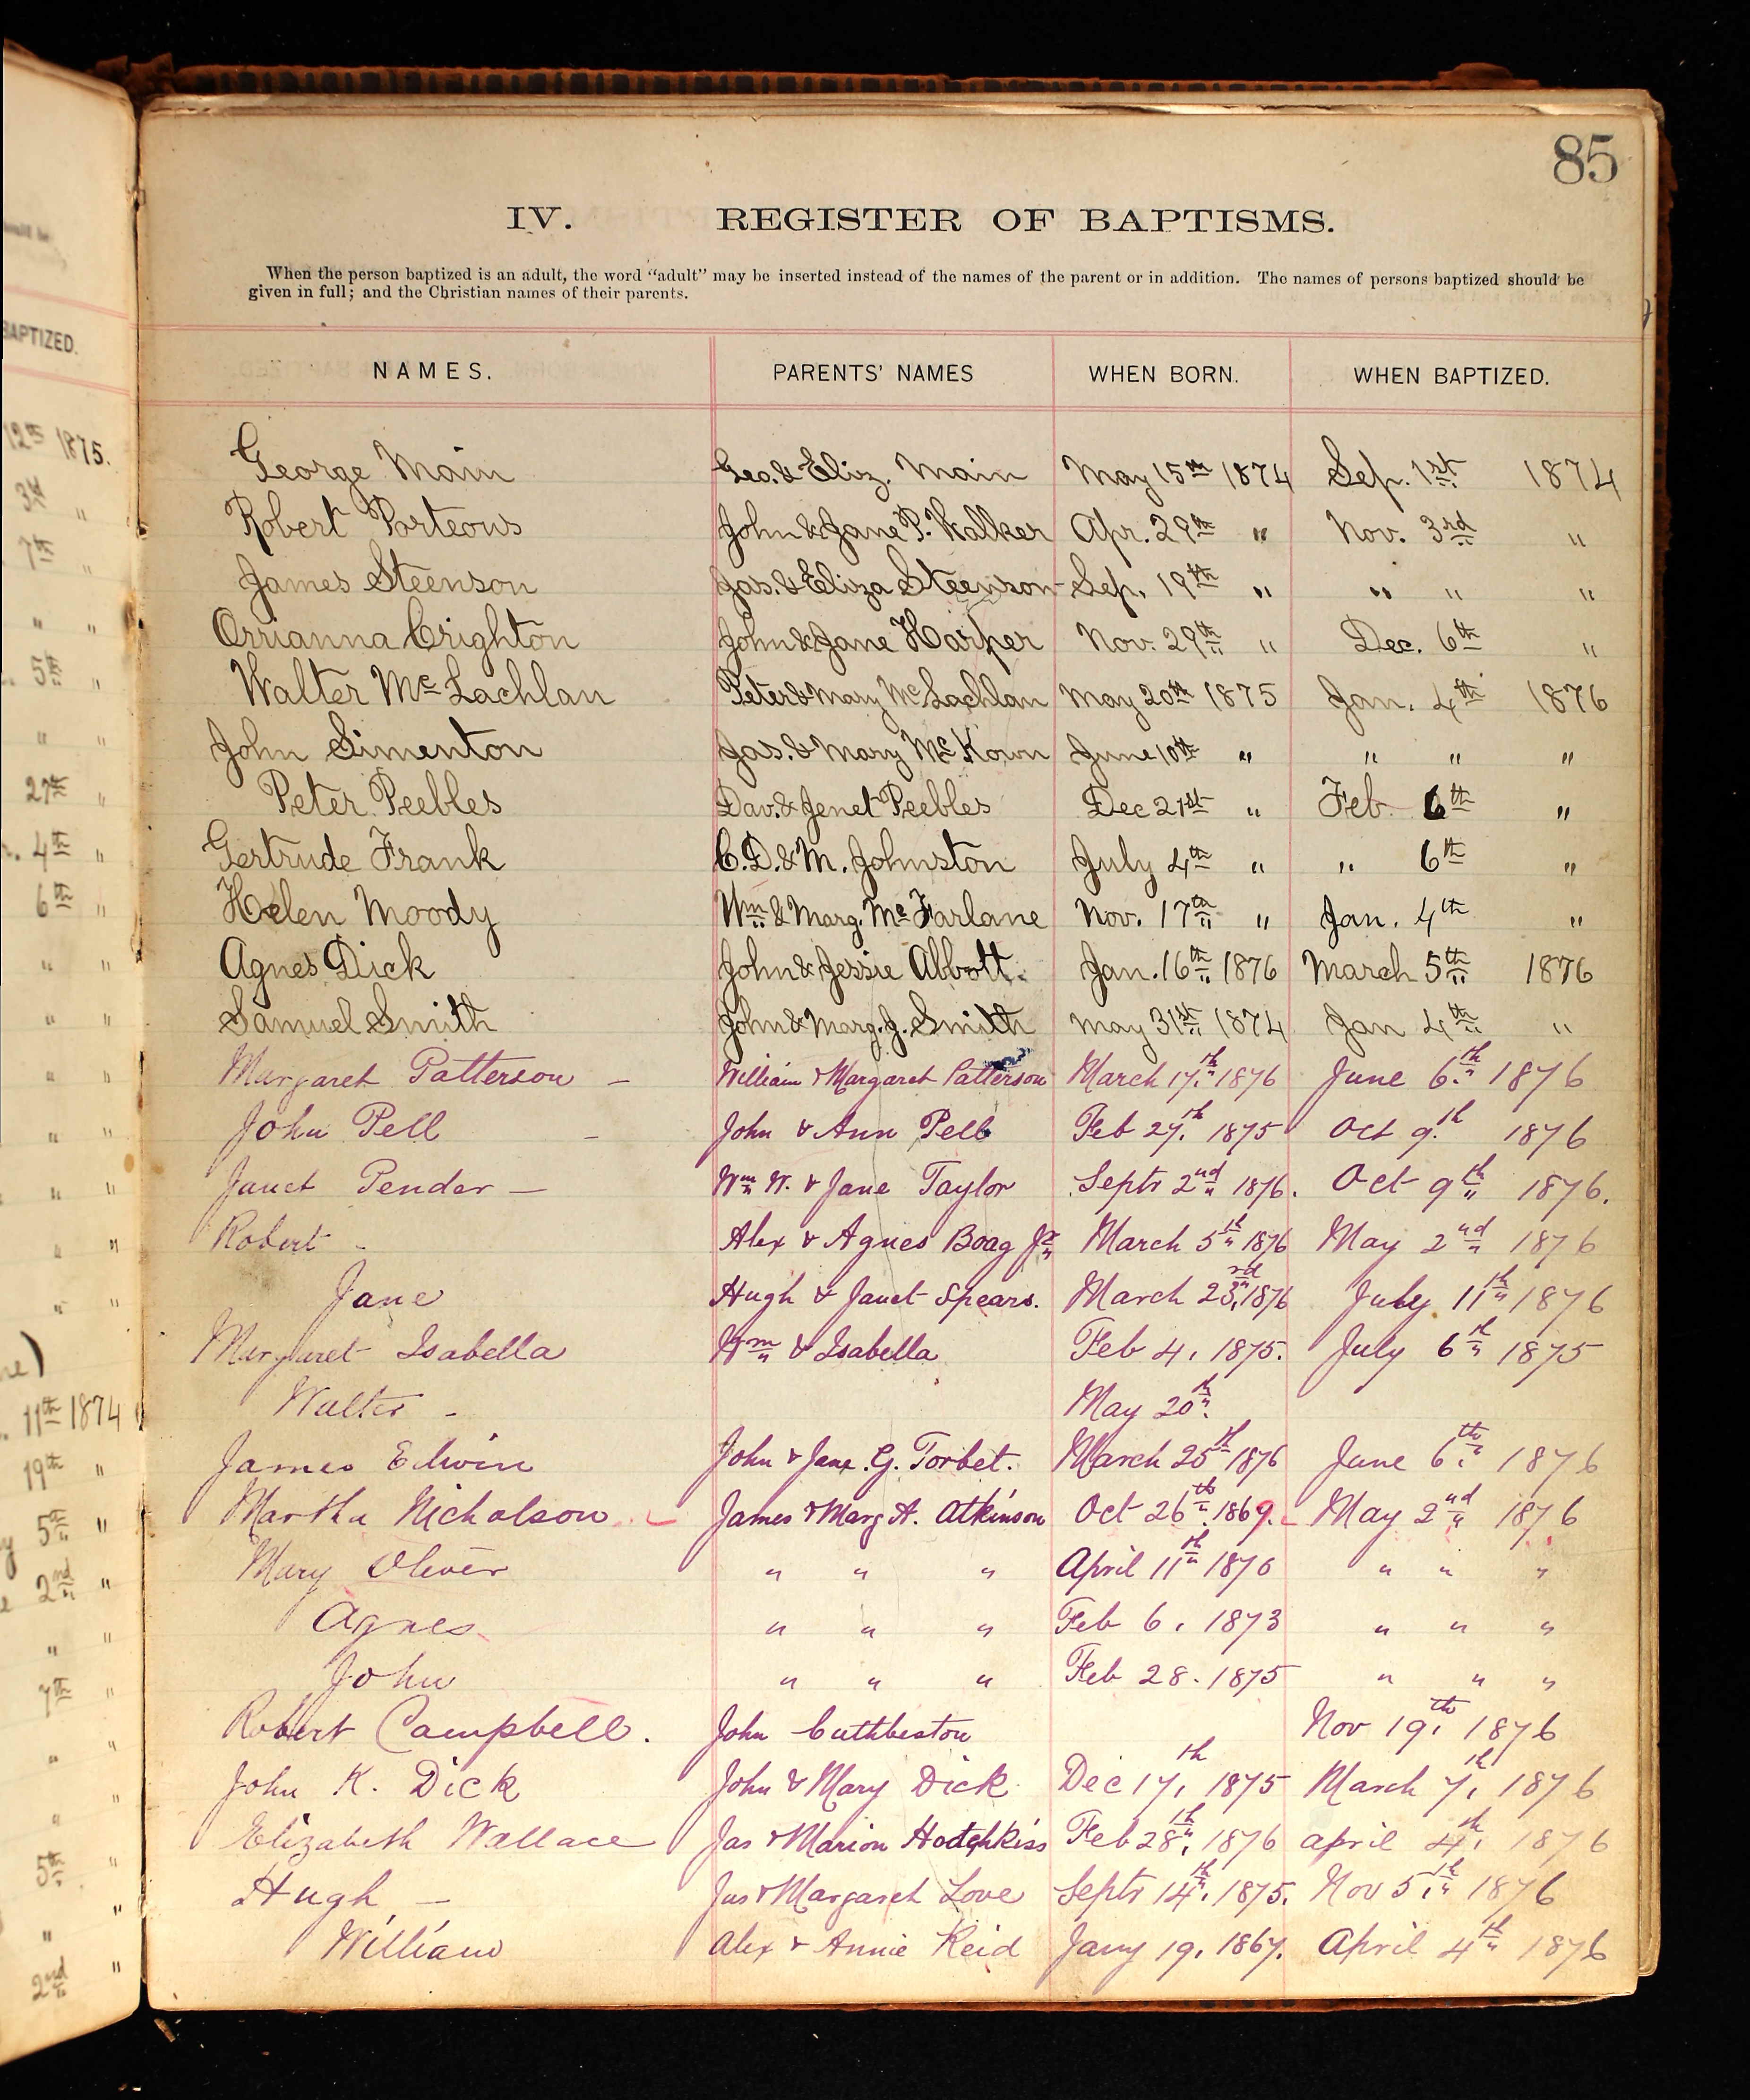 85
IV. REGISTER OF BAPTISMS.
When the person baptized is an adult, the word “adult” may be inserted instead of the names of the parent or in addition. The names of persons baptized should be
given in full; and the Christian names of their parents.
BAPTIZED.
NAMES. PARENTS' NAMES WHEN BORN. WHEN BAPTIZED.
12th 1875.
George Main Geo. & Eliz. Main May 15th 1874 Sep. 1st 1874
3rd "
Robert Porteous John & Jane P. Walker Apr. 29th " Nov. 3rd "
7th "
James Steenson Jas. & Eliza Steenson Sep. 19th " " " "
" "
Orrianna Crighton John & Jane Harper Nov. 29th " Dec. 6th "
5th "
Walter Mc Lachlan Peter & Mary McLachlan May 20th 1875 Jan. 4th 1876
" "
John Simenton Jas. & Mary Mc Kown June 10th " " " "
27th "
Peter Peebles Dav. & Jenet Peebles Dec 21st " Feb. 6th "
4th "
Gertrude Frank C. D. & M. Johnston July 4th " " 6th "
6th "
Helen Moody Wm & Marg. Mc Farlane Nov. 17th " Jan. 4th "
" "
Agnes Dick John & Jessie Abbott. Jan. 16th 1876 March 5th 1876
" "
Samuel Smith John & Marg. J. Smith May 31st 1874 Jan 4th "
" "
Margaret Patterson – William & Margaret Patterson March 17th 1876 June 6th 1876
" "
John Pell – John & Ann Pell Feb 27th 1875 Oct 9th 1876
" "
Janet Pender – Wm W. & Jane Taylor Septr 2nd 1876. Oct 9th 1876.
" "
Robert – Alex & Agnes Boag Jr March 5th 1876 May 2nd 1876
" "
Jane Hugh & Janet Spears. March 23rd 1876 July 11th 1876
)
Margaret Isabella Wm & Isabella Feb 4, 1875. July 6th 1875
11th 1874
Walter – May 20th
19th "
James Edwin John & Jane. G. Torbet. March 25th 1876 June 6th 1876
5th "
Martha Nicholson James & Marg A. Atkinson Oct 26th 1869. May 2nd 1876
2nd "
Mary Oliver " " " April 11th 1870 " " "
" "
Agnes " " " Feb 6, 1873 " " "
7th "
John " " " Feb 28. 1875 " " "
" "
Robert Campbell. John Cuthbeston Nov 19th 1876
" "
John K. Dick John & Mary Dick Dec 17th, 1875 March 7th, 1876
5th "
Elizabeth Wallace Jas & Marion Hotchkiss Feb 28th, 1876 april 4th 1876
" "
Hugh – Jas & Margaret Love Septr 14th, 1875. Nov 5th 1876
2nd "
William Alex & Annie Reid Jany 19, 1867. April 4th 1876